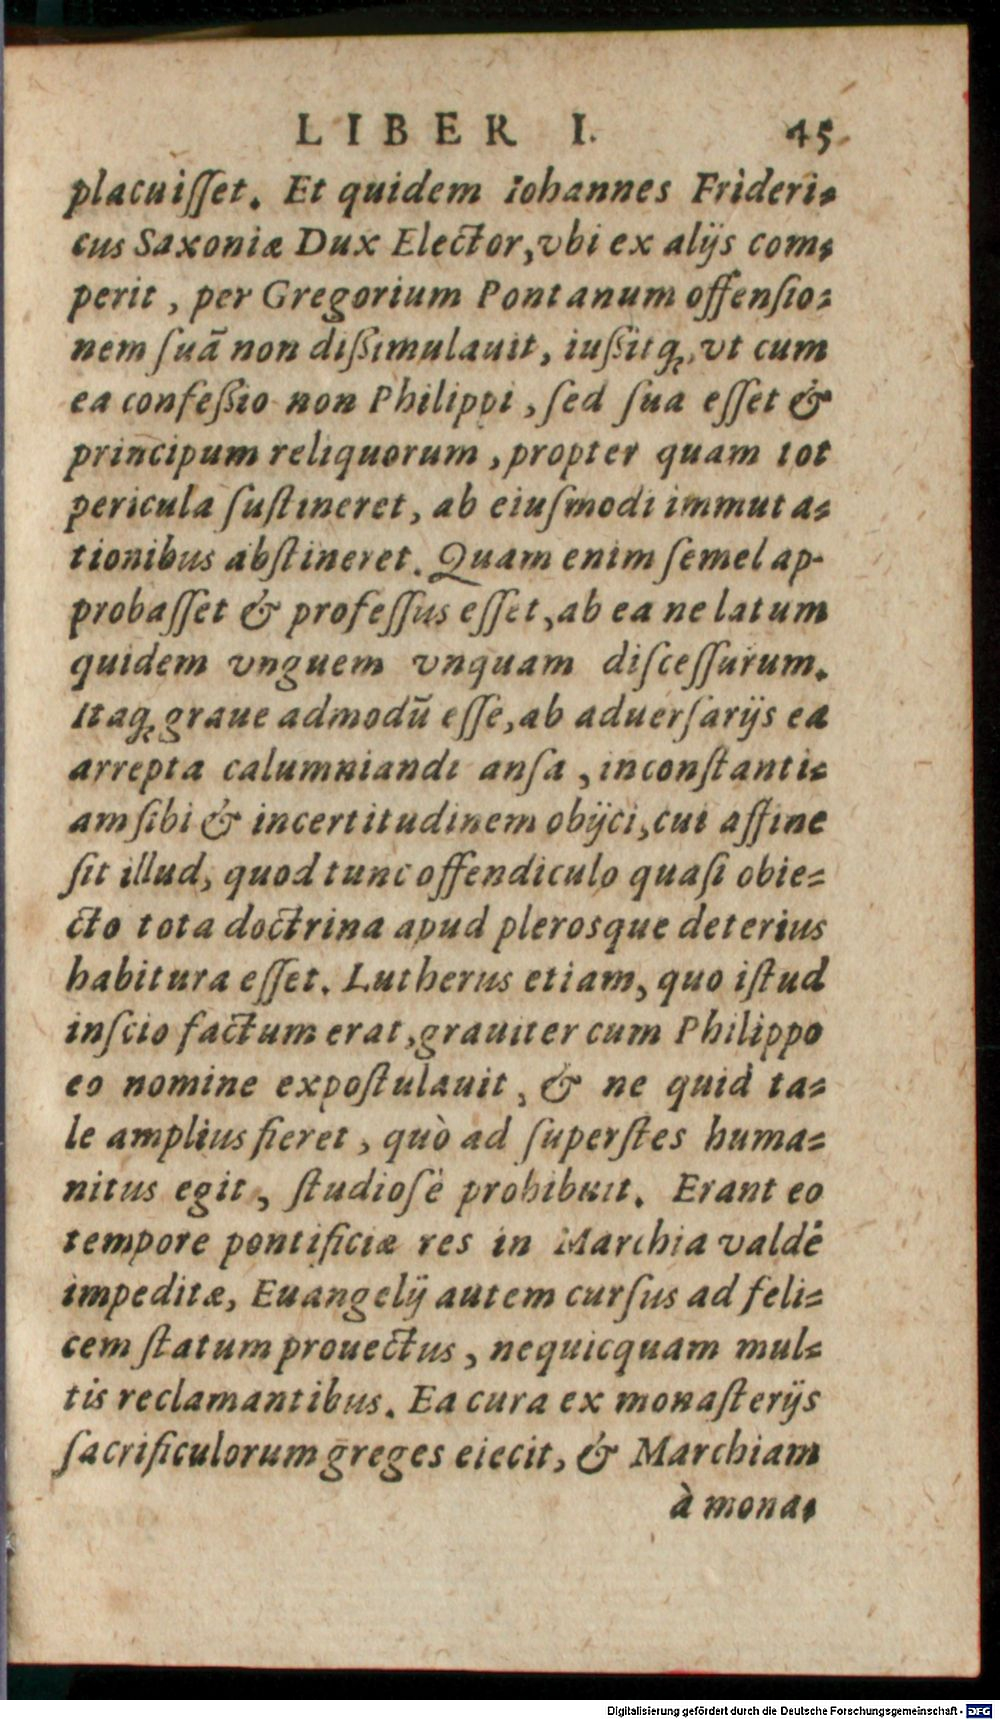 LIBER I. 45
placuiſſet. Et quidem Iohannes Frideri-
cus Saxoniæ Dux Elector, vbi ex alijs com-
perit, per Gregorium Pontanum offenſio-
nem ſuā non dißimulauit, iußitq́;, vt cum
ea confeßio non Philippi, ſed ſua eſſet &
principum reliquorum, propter quam tot
pericula ſuſtineret, ab eiuſmodi immuta-
tionibus abſtineret. Quam enim ſemel ap-
probaſſet & profeſſus eſſet, ab ea ne latum
quidem vnguem vnquam diſceſſurum.
Itaq; graue admodū eſſe, ab aduerſarijs ea
arrepta calumniandi anſa, inconſtanti-
am ſibi & incertitudinem obijci, cui affine
ſit illud, quod tunc offendiculo quaſi obie-
cto tota doctrina apud plerosque deterius
habitura eſſet. Lutherus etiam, quo iſtud
inſcio factum erat, grauiter cum Philippo
eo nomine expoſtulauit, & ne quid ta-
le amplius fieret, quò ad ſuperſtes huma-
nitus egit, ſtudioſè prohibuit. Erant eo
tempore pontificiæ res in Marchia valdè
impeditæ, Euangelij autem curſus ad feli-
cem ſtatum prouectus, nequicquam mul-
tis reclamantibus. Ea cura ex monaſterijs
ſacrificulorum greges eiecit, & Marchiam
à mona-
Digitalisierung gefördert durch die Deutsche Forschungsgemeinschaft - DFG